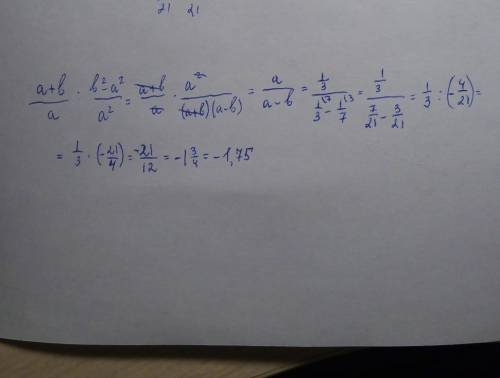 21 21
a+b/a · b²-a²/a² = a+b/a · a²/(a+b)(a-b) = a/a-b = 1/3 / 1/3 \7 - 1/7 \3 = 1/3 / 7/21 - 3/21 = 1/3 : (4/21) =
= 1/3 · (-21/4) = -21/12 = -1 3/4 = -1,75